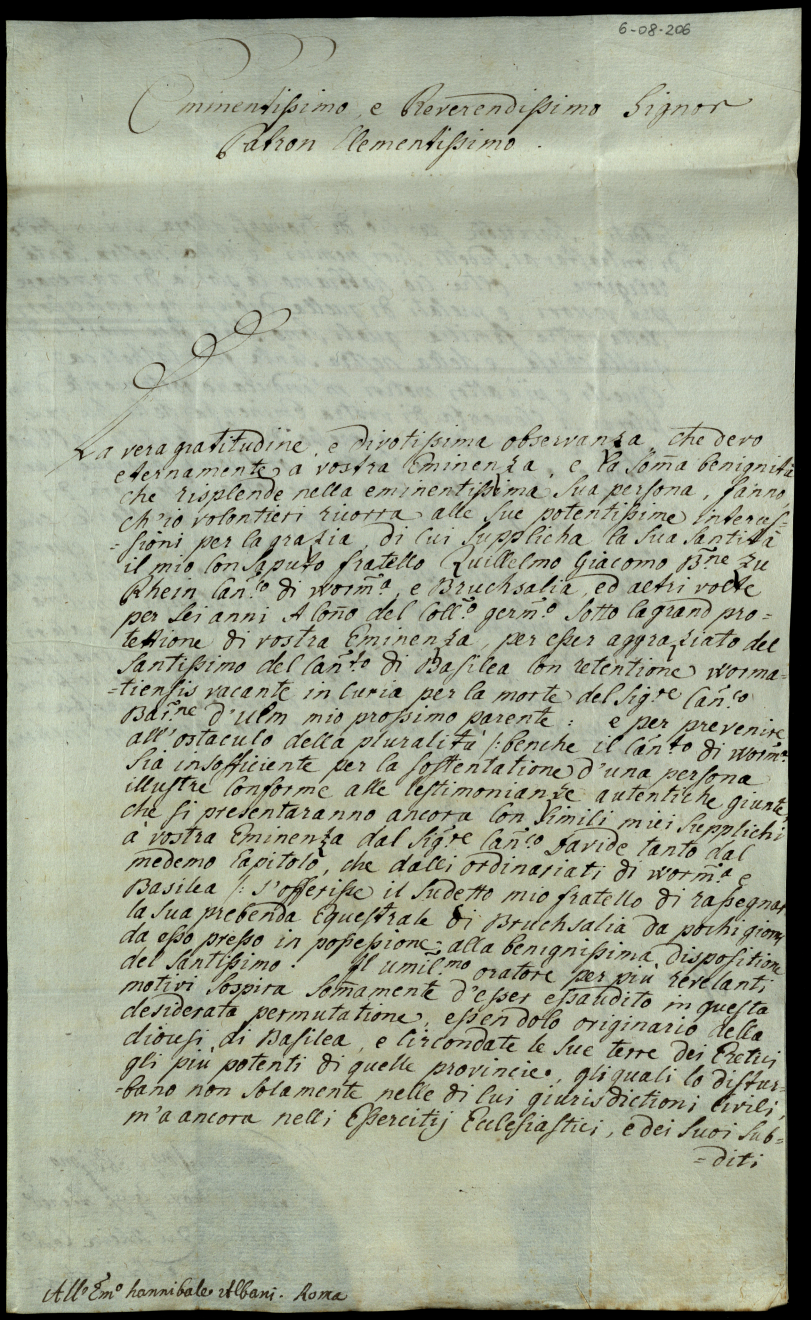 6-08-206
Eminentissimo, e Reverendissimo Signor
Patron Clementissimo.
La vera gratitudine, e divotissima observanza, che devo
eternamente a vostra Eminenza, e la som̃a benignità
che risplende nella eminentissima sua persona, fanno,
ch'io volontieri ricorra alle sue potentissime interces-
=sioni per la grazia, di cui supplicha la sua Santità
il mio consaputo fratello Quillelmo Giacomo B.ne zu
Rhein Can.co di worm.a, e Bruchsalia, ed altri volte
per sei anni Aloño del Coll.o germ.o sotto la grand pro-
tettione di vostra Eminenza per esser aggraziato del
Santissimo del Can.to di Basilea con retentione worma-
=tiensis vacante in Curia per la morte del Sig.re Can.co
Bar.ne d'Ulm mio prossimo parente: e per prevenire
all'ostaculo della pluralità /: benche il Can.to di worm.a
sia insofficiente per la sostentatione d'una persona
illustre conforme alle testimonianze autentiche giunte
che si presentaranno ancora con simili miei supplichi
a vostra Eminenza dal Sig.re Can.co Davide tanto dal
medemo Capitolo, che dalli ordinariati di worm.a e
Basilea /: s'offerisse il sudetto mio fratello di rassegnar
la sua prebenda Equestrale di Bruchsalia da pochi giorni
da esso presso in possessione alla benignissima dispositione
del Santissimo. Il umil.mo oratore per più revelanti
motivi sospira som̃amente d'esser essaudito in questa
desiderata permutatione, essendolo originario della
diocesi di Basilea, e circondate le sue terre dei Eretici
gli più potenti di quelle provincie, gli quali lo distur-
bano non solamente nelle di lui giurisdictioni civili,
m'a ancora nelli Essercitij Ecclesiastici, e dei suoi sub-
=diti
All' Em̃o hannibale Albani. Roma